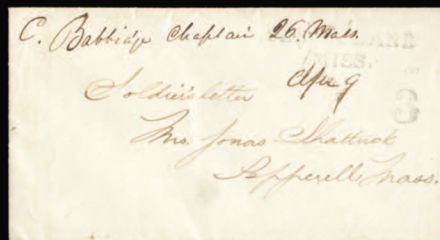 C. Babbidge Chaplain 26. Mass.
ISLAND
MISS.
Apr 9
3
Soldier's letter
Mrs. Jonas Shattuck
Pepperell Mass.